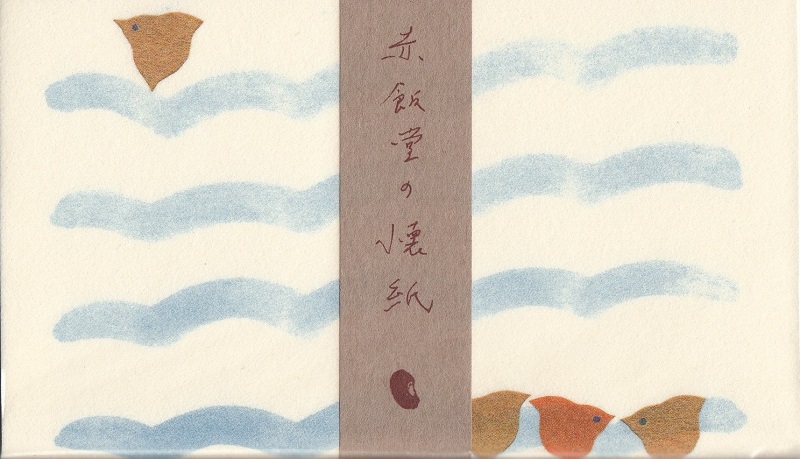 赤飯堂の懐紙